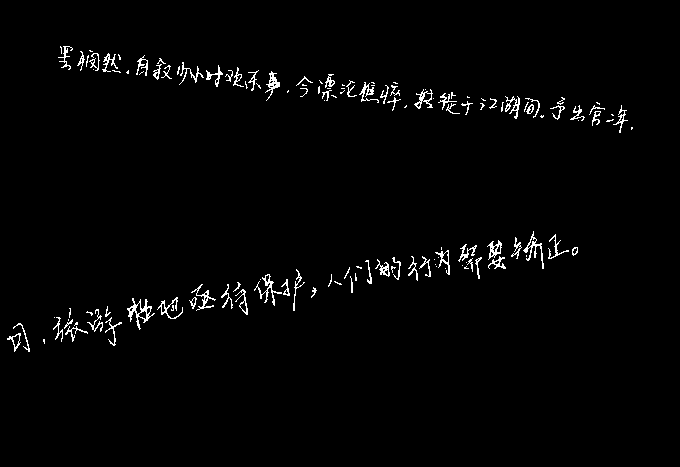 罢悯然，自叙少小时欢乐事，今漂沦憔悴，转徙于江湖间。予出官二年，
月，旅游胜地亟待保护，人们的行为需要矫正。